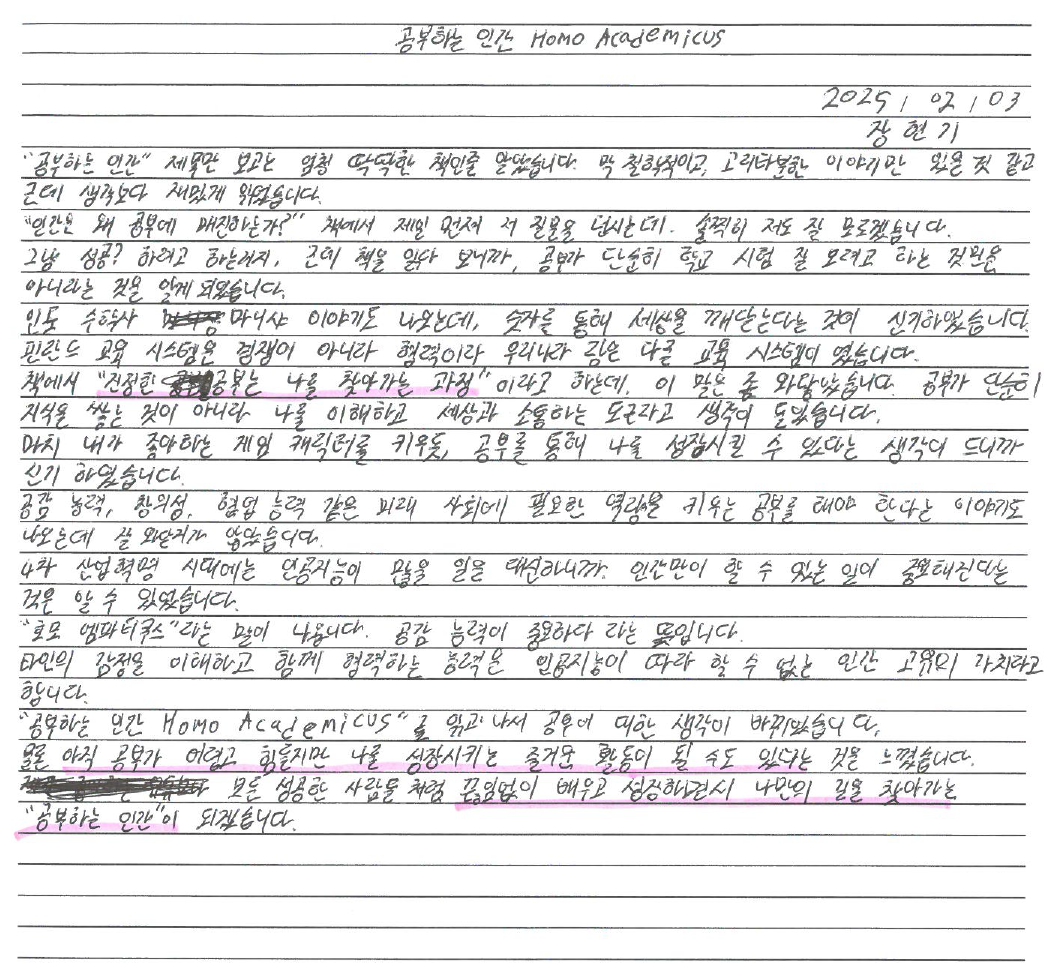 공부하는 인간 Homo Academicus
2025, 02, 03
장현기
"공부하는 인간" 제목만 보고는 엄청 딱딱한 책인줄 알았습니다. 막 철학적이고, 고리타분한 이야기만 있을 것 같고
근데 생각보다 재밌게 읽었습니다.
"인간은 왜 공부에 매진하는가?" 책에서 제일 먼저 저 질문을 던지는데. 솔찍히 저도 잘 모르겠습니다.
그냥 성공? 하려고 하는거지, 근데 책을 읽다 보니까, 공부가 단순히 학교 시험 잘 보려고 하는 것만은
아니라는 것을 알게 되었습니다.
인도 수학사 마니샤 이야기도 나오는데, 숫자를 통해 세상을 깨닫는다는 것이 신기하였습니다.
핀란드 교육 시스템은 경쟁이 아니라 협력이라 우리나라 같은 다를 교육 시스템이 였습니다.
책에서 "진정한 공부는 나를 찾아가는 과정"이라고 하는데, 이 말은 좀 와닿았습니다. 공부가 단순히
지식을 쌓는 것이 아니라 나를 이해하고 세상과 소통하는 도구라고 생각이 들었습니다.
마치 내가 좋아하는 게임 캐릭터를 키우듯, 공부를 통해 나를 성장시킬 수 있다는 생각이 드니까
신기 하였습니다.
공감 능력, 창의성, 협업 능력 같은 미래 사회에 필요한 역량을 키우는 공부를 해야 한다는 이야기도
나오는데 잘 와닫지가 않았습니다.
4차 산업혁명 시대에는 인공지능이 많을 일을 대신하니까. 인간만이 할 수 있는 일이 중요해진다는
것은 알 수 있었습니다.
"호모 엠파티쿠스"라는 말이 나옵니다. 공감 능력이 중요하다 라는 뜻입니다.
타인의 감정을 이해하고 함께 협력하는 능력은 인공지능이 따라 할 수 없는 인간 고유의 가치라고
합니다.
"공부하는 인간 Homo Academicus"를 읽고나서 공부에 대한 생각이 바뀌었습니다.
물론 아직 공부가 어렵고 힘들지만 나를 성장시키는 즐거운 활동이 될 수도 있다는 것을 느꼈습니다.
모든 성공한 사람들 처럼 끊임없이 배우고 성장하면서 나만의 길을 찾아가는
"공부하는 인간"이 되겠습니다.